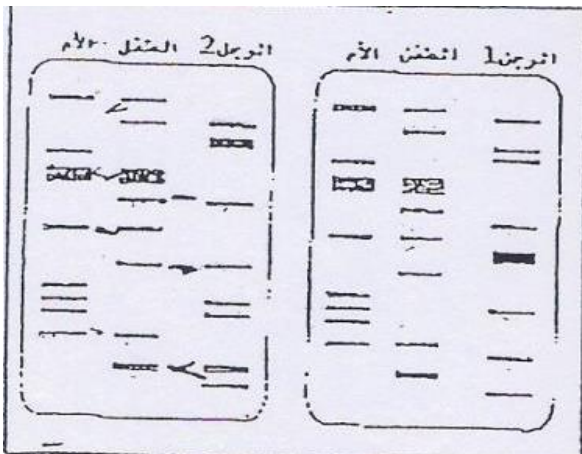 الرجل1 الطفل الأم
الرجل2 الطفل الأم